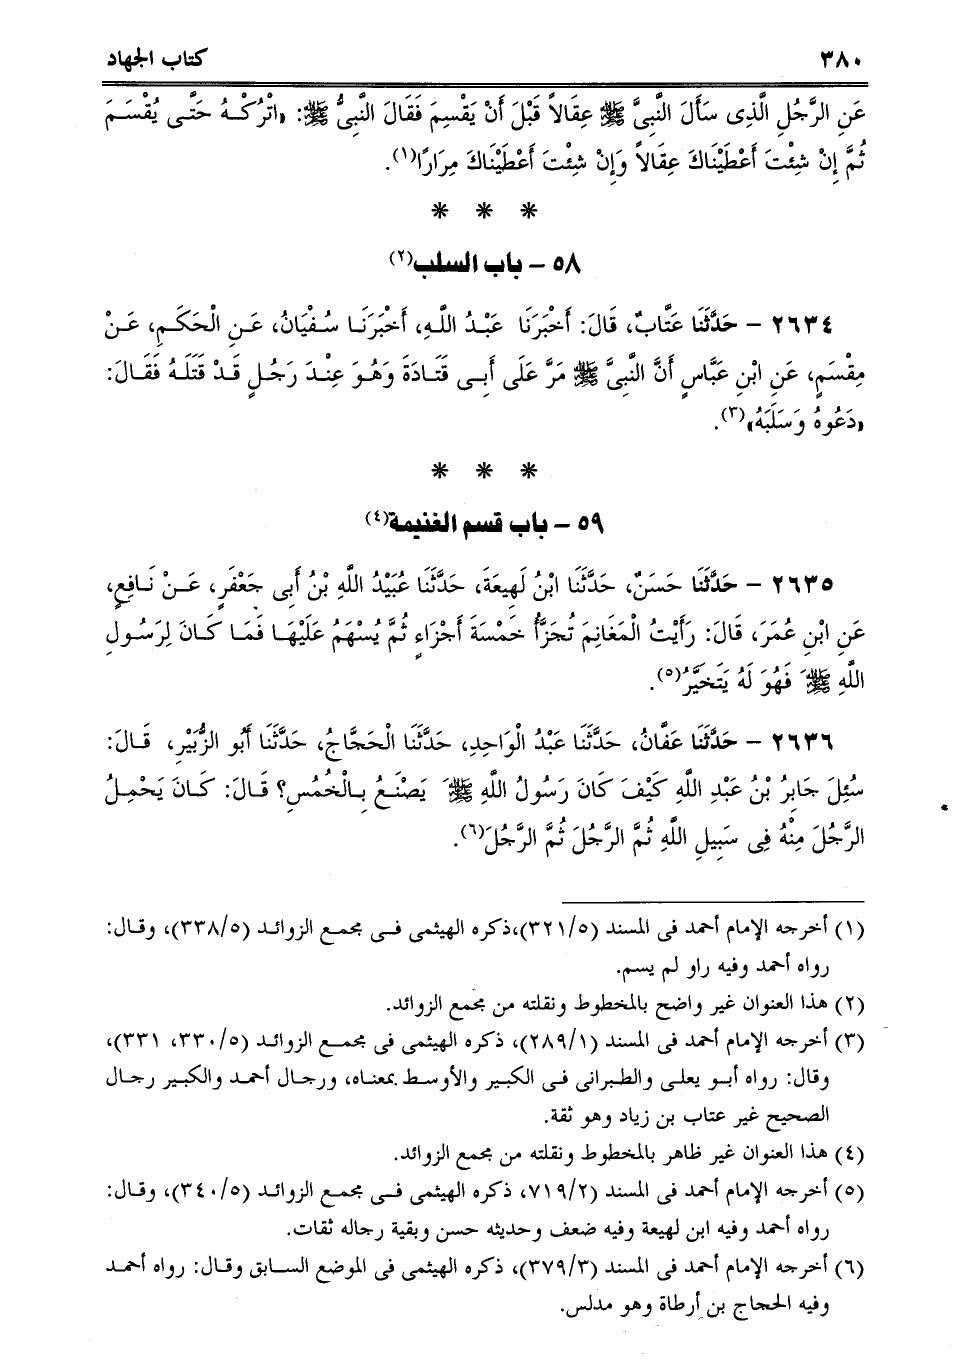 ٣٨٠ كتاب الجهاد
عَنِ الرَّجُلِ الَّذِى سَأَلَ النَّبِىَّ ﷺ عِقَالاً قَبْلَ أَنْ يَقْسِمَ فَقَالَ النَّبِىُّ ﷺ: «اتْرُكْهُ حَتَّى يُقْسَمَ
ثُمَّ إِنْ شِئْتَ أَعْطَيْنَاكَ عِقَالاً وَإِنْ شِئْتَ أَعْطَيْنَاكَ مِرَارًا(١).
* * *
٥٨ - باب السلب(٢)
٢٦٣٤ - حَدَّثَنَا عَتَّابٌ، قَالَ: أَخْبَرَنَا عَبْدُ اللَّهِ، أَخْبَرَنَا سُفْيَانُ، عَنِ الْحَكَمِ، عَنْ
مِقْسَمٍ، عَنِ ابْنِ عَبَّاسٍ أَنَّ النَّبِىَّ ﷺ مَرَّ عَلَى أَبِى قَتَادَةَ وَهُوَ عِنْدَ رَجُلٍ قَدْ قَتَلَهُ فَقَالَ:
«دَعُوهُ وَسَلَبَهُ»(٣).
* * *
٥٩ - باب قسم الغنيمة(٤)
٢٦٣٥ - حَدَّثَنَا حَسَنٌ، حَدَّثَنَا ابْنُ لَهِيعَةَ، حَدَّثَنَا عُبَيْدُ اللَّهِ بْنُ أَبِى جَعْفَرٍ، عَنْ نَافِعٍ،
عَنِ ابْنِ عُمَرَ، قَالَ: رَأَيْتُ الْمَغَانِمَ تُجَزَّأُ خَمْسَةَ أَجْزَاءٍ ثُمَّ يُسْهَمُ عَلَيْهَا فَمَا كَانَ لِرَسُولِ
اللَّهِ ﷺ فَهُوَ لَهُ يَتَخَيَّرُ(٥).
٢٦٣٦ - حَدَّثَنَا عَفَّانُ، حَدَّثَنَا عَبْدُ الْوَاحِدِ، حَدَّثَنَا الْحَجَّاجُ، حَدَّثَنَا أَبُو الزُّبَيْرِ، قَالَ:
سُئِلَ جَابِرُ بْنُ عَبْدِ اللَّهِ كَيْفَ كَانَ رَسُولُ اللَّهِ ﷺ يَصْنَعُ بِالْخُمُسِ؟ قَالَ: كَانَ يَحْمِلُ
الرَّجُلَ مِنْهُ فِى سَبِيلِ اللَّهِ ثُمَّ الرَّجُلَ ثُمَّ الرَّجُلَ(٦).
(١) أخرجه الإمام أحمد فى المسند (٣٢١/٥)،ذكره الهيثمى فى مجمع الزوائد (٣٣٨/٥)، وقال:
رواه أحمد وفيه راو لم يسم.
(٢) هذا العنوان غير واضح بالمخطوط ونقلته من مجمع الزوائد.
(٣) أخرجه الإمام أحمد فى المسند (٢٨٩/١)، ذكره الهيثمى فى مجمع الزوائد (٣٣٠/٥، ٣٣١)،
وقال: رواه أبو يعلى والطبرانى فى الكبير والأوسط بمعناه، ورجال أحمد والكبير رجال
الصحيح غير عتاب بن زياد وهو ثقة.
(٤) هذا العنوان غير ظاهر بالمخطوط ونقلته من مجمع الزوائد.
(٥) أخرجه الإمام أحمد فى المسند (٧١٩/٢، ذكره الهيثمى فى مجمع الزوائد (٣٤٠/٥)، وقال:
رواه أحمد وفيه ابن لهيعة وفيه ضعف وحديثه حسن وبقية رجاله ثقات.
(٦) أخرجه الإمام أحمد فى المسند (٣٧٩/٣)، ذكره الهيثمى فى الموضع السابق وقال: رواه أحمد
وفيه الحجاج بن أرطاة وهو مدلس.